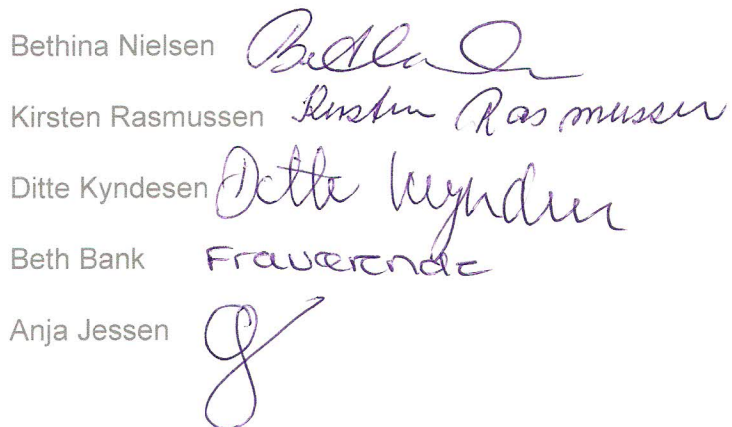 Bethina Nielsen
Kirsten Rasmussen Kirsten Rasmussen
Ditte Kyndesen Ditte
Beth Bank Fraværende
Anja Jessen